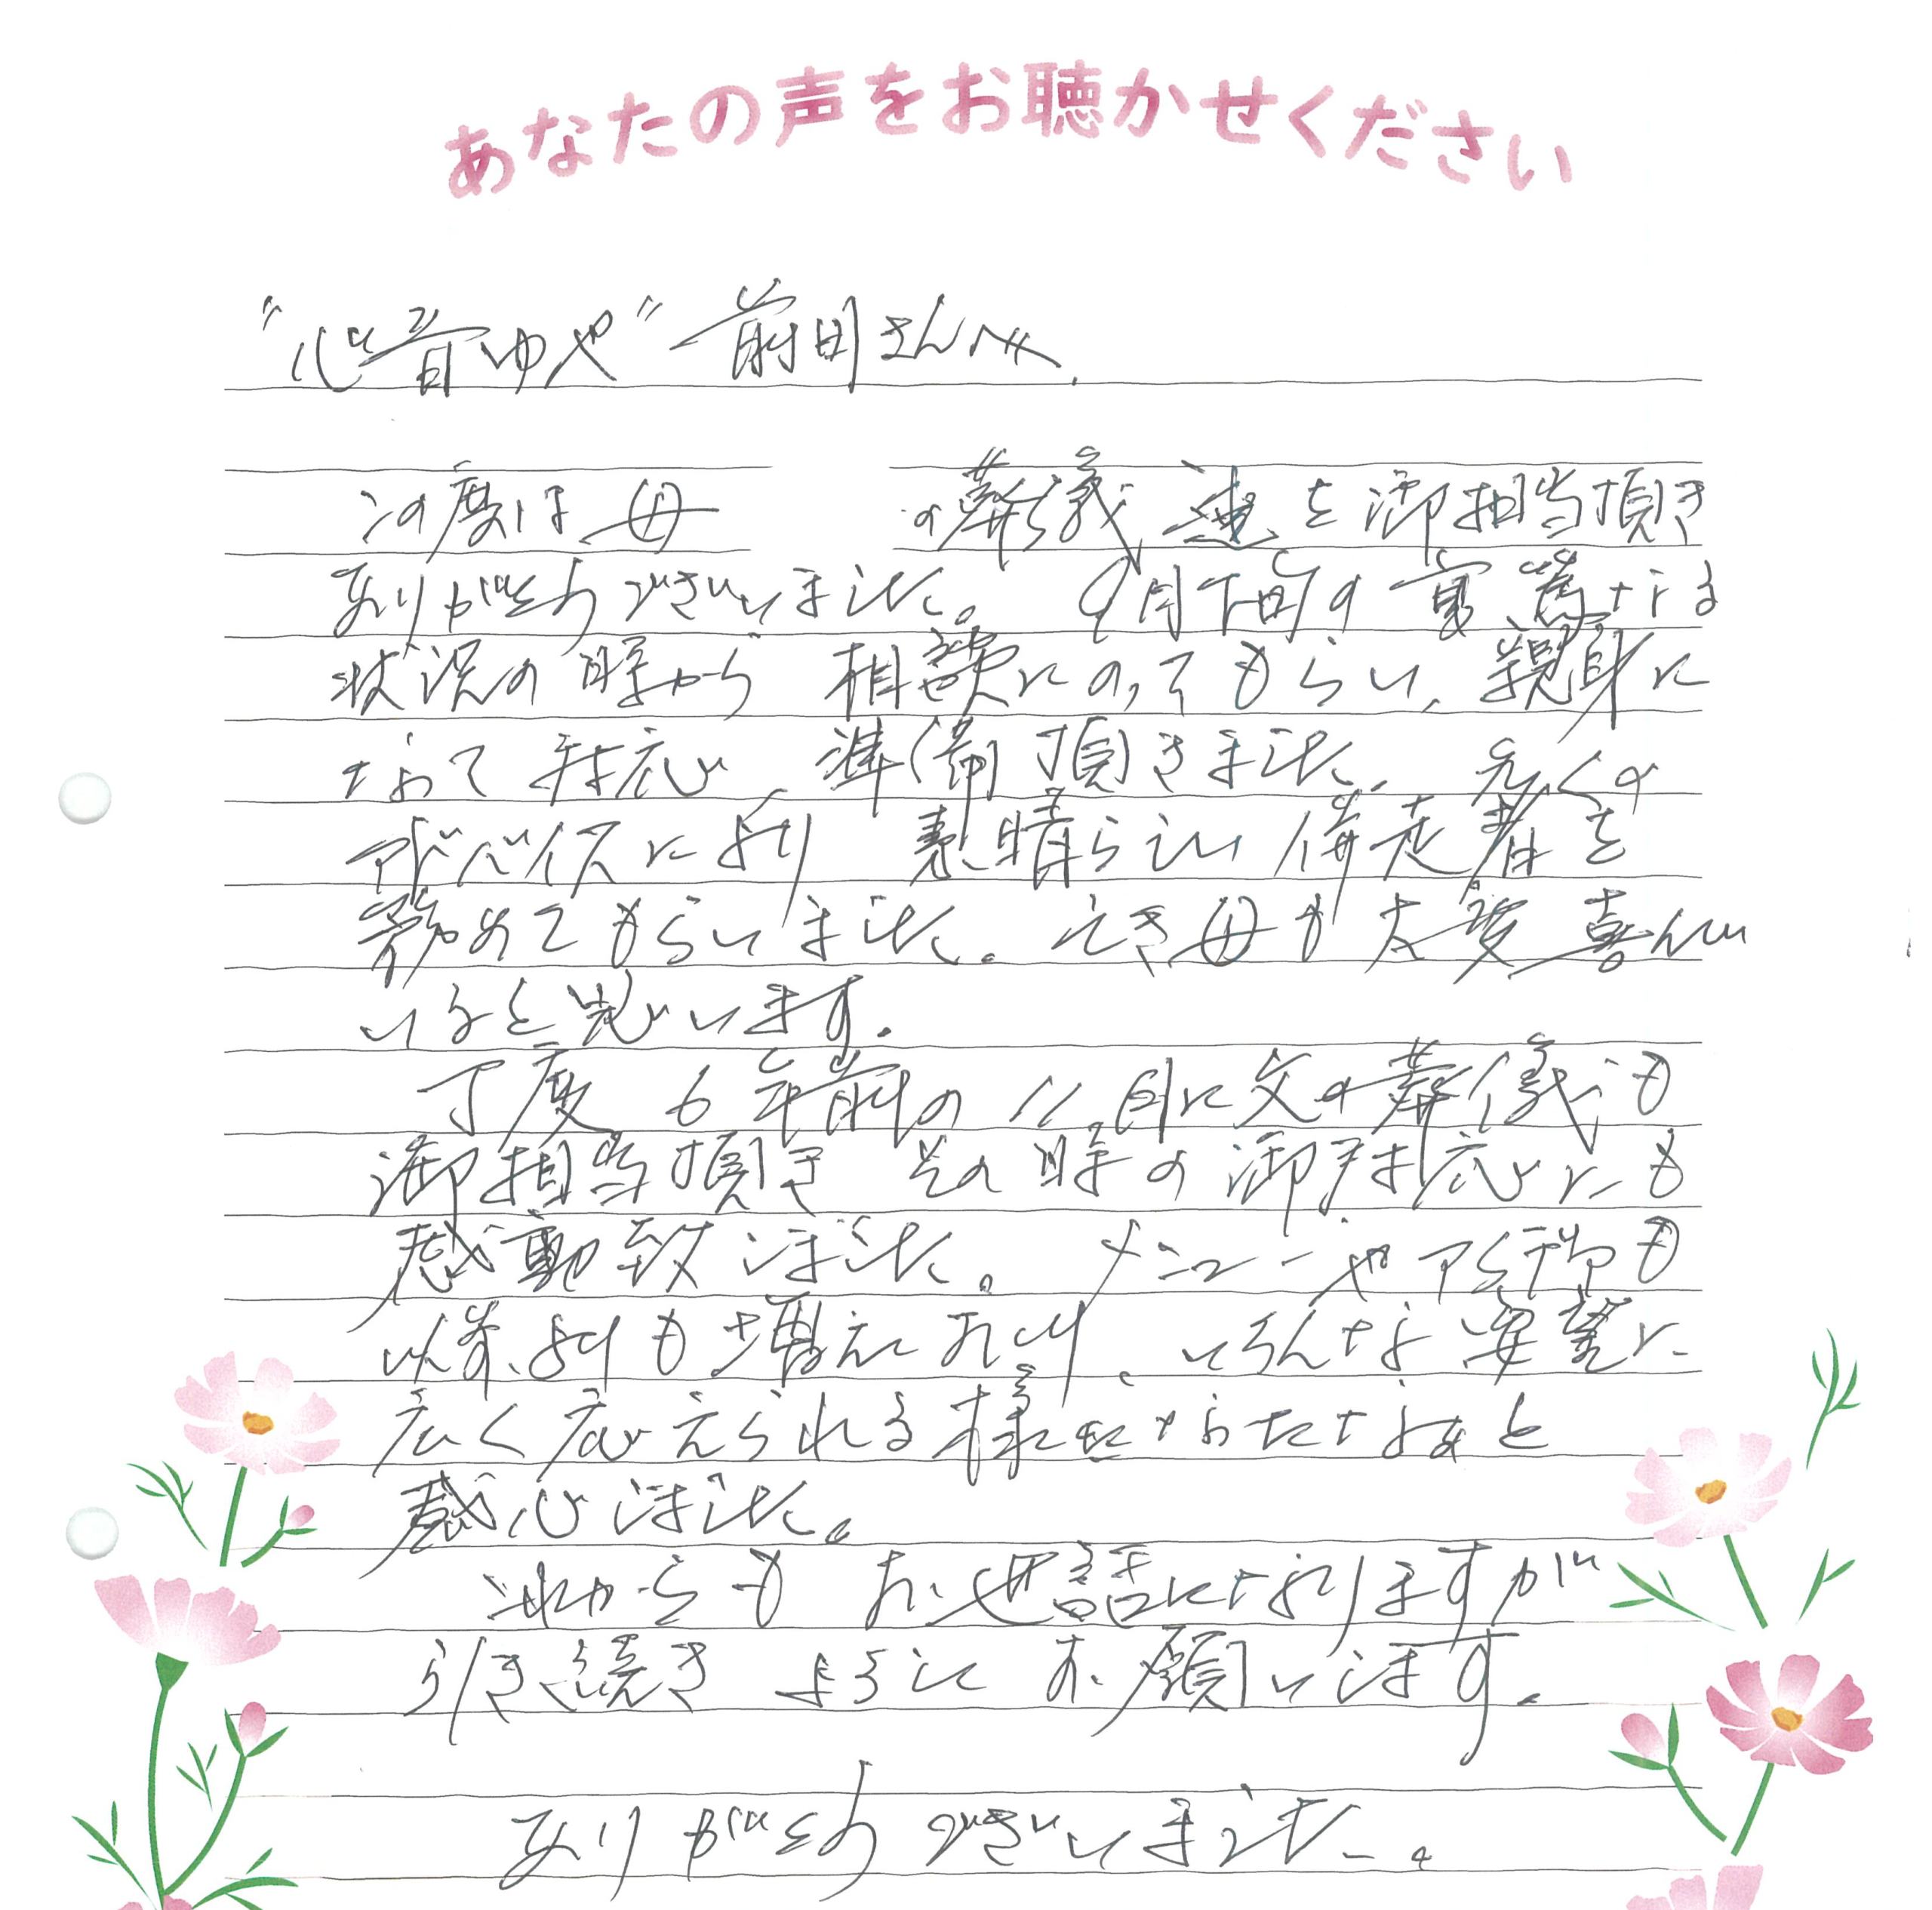 あなたの声をお聴かせください
"心音ゆや" 前田さんへ
この度は 母 の葬儀 達を御担当頂き
ありがとうございました。 9月下旬の 篤なる
状況の時から 相談にのってもらい、親身に
なって 対応 準備頂きました。 多くの
アドバイスにより 素晴らしい伴走者を
務めてもらいました。 亡き母も大変喜んで
いると思います。
丁度 6年前の 11月に父の葬儀も
御担当頂き その時の御対応にも
感動致しました。 メニューや も
以前よりも増えており、いろんな要望に
広く応えられる様になったなぁと
感心しました。
これからも お世話になりますが
引き続き よろしく お願いします。
ありがとうございました。